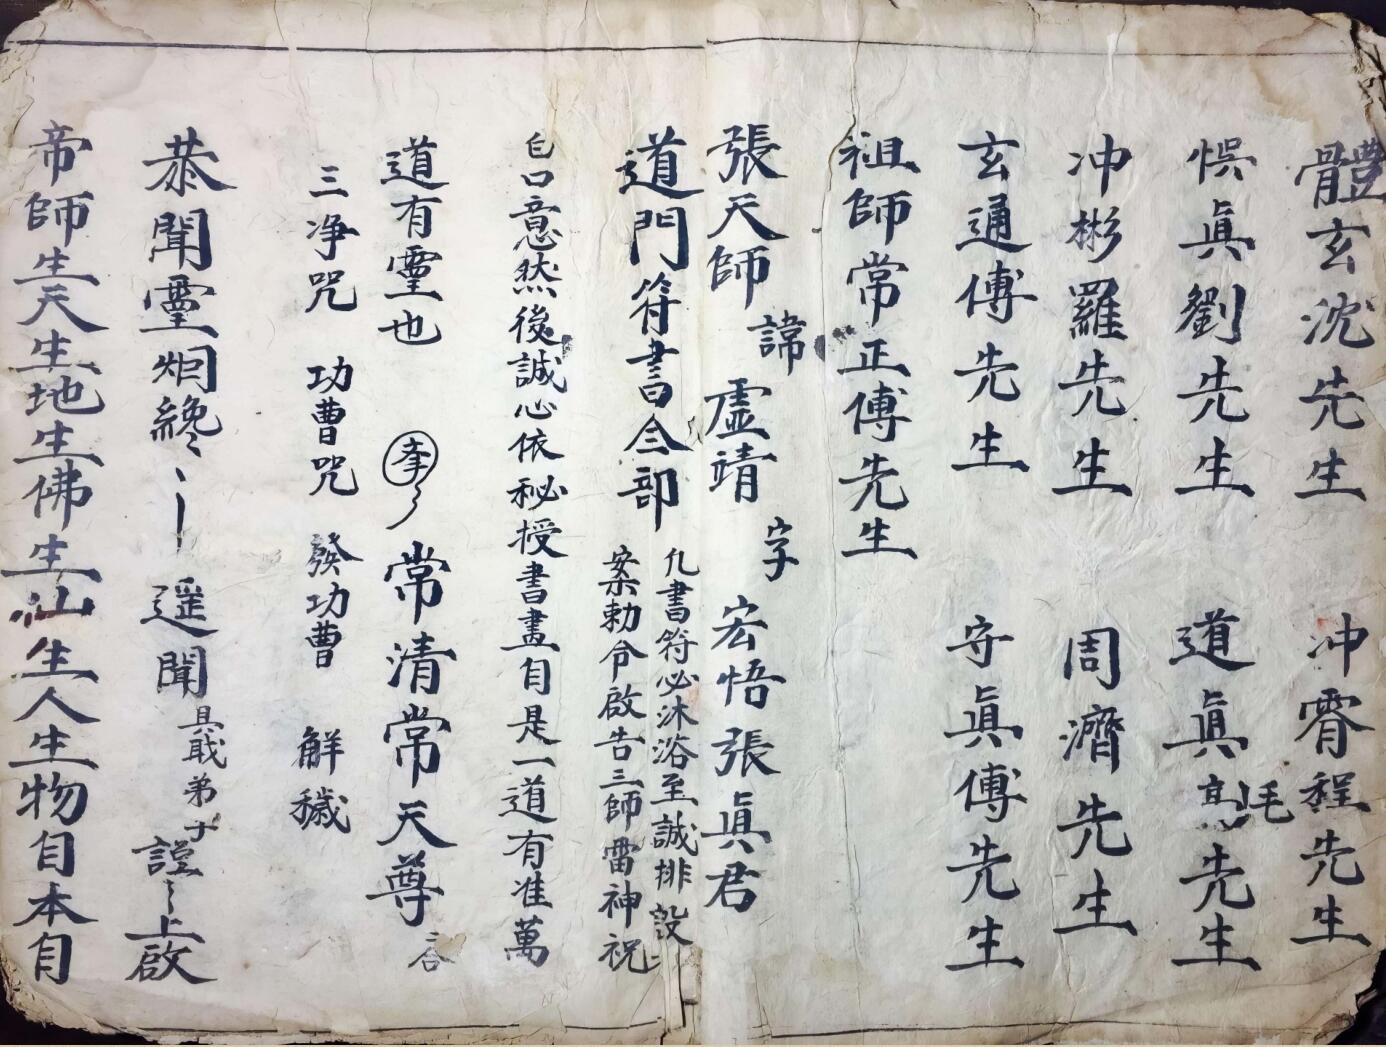 體玄沈先生 冲霄程先生
悮眞劉先生 道眞先生
冲彬羅先生 周濟先生
玄通傅先生 守眞傅先生
祖師常正傅先生
張天師諱虛靖字宏悟張眞君
道門符書全部
凡書符必沐浴至誠排設
案勅令啟告三師雷神祝
白口意然後誠心依秘授書畫自是一道有准萬
道有靈也 常清常天尊
三净咒 功曹咒 發功曹 解穢
恭聞靈烟纔 遥聞 具戠弟子 謹 上啟
帝師生天生地生佛生仙生人生物自本自